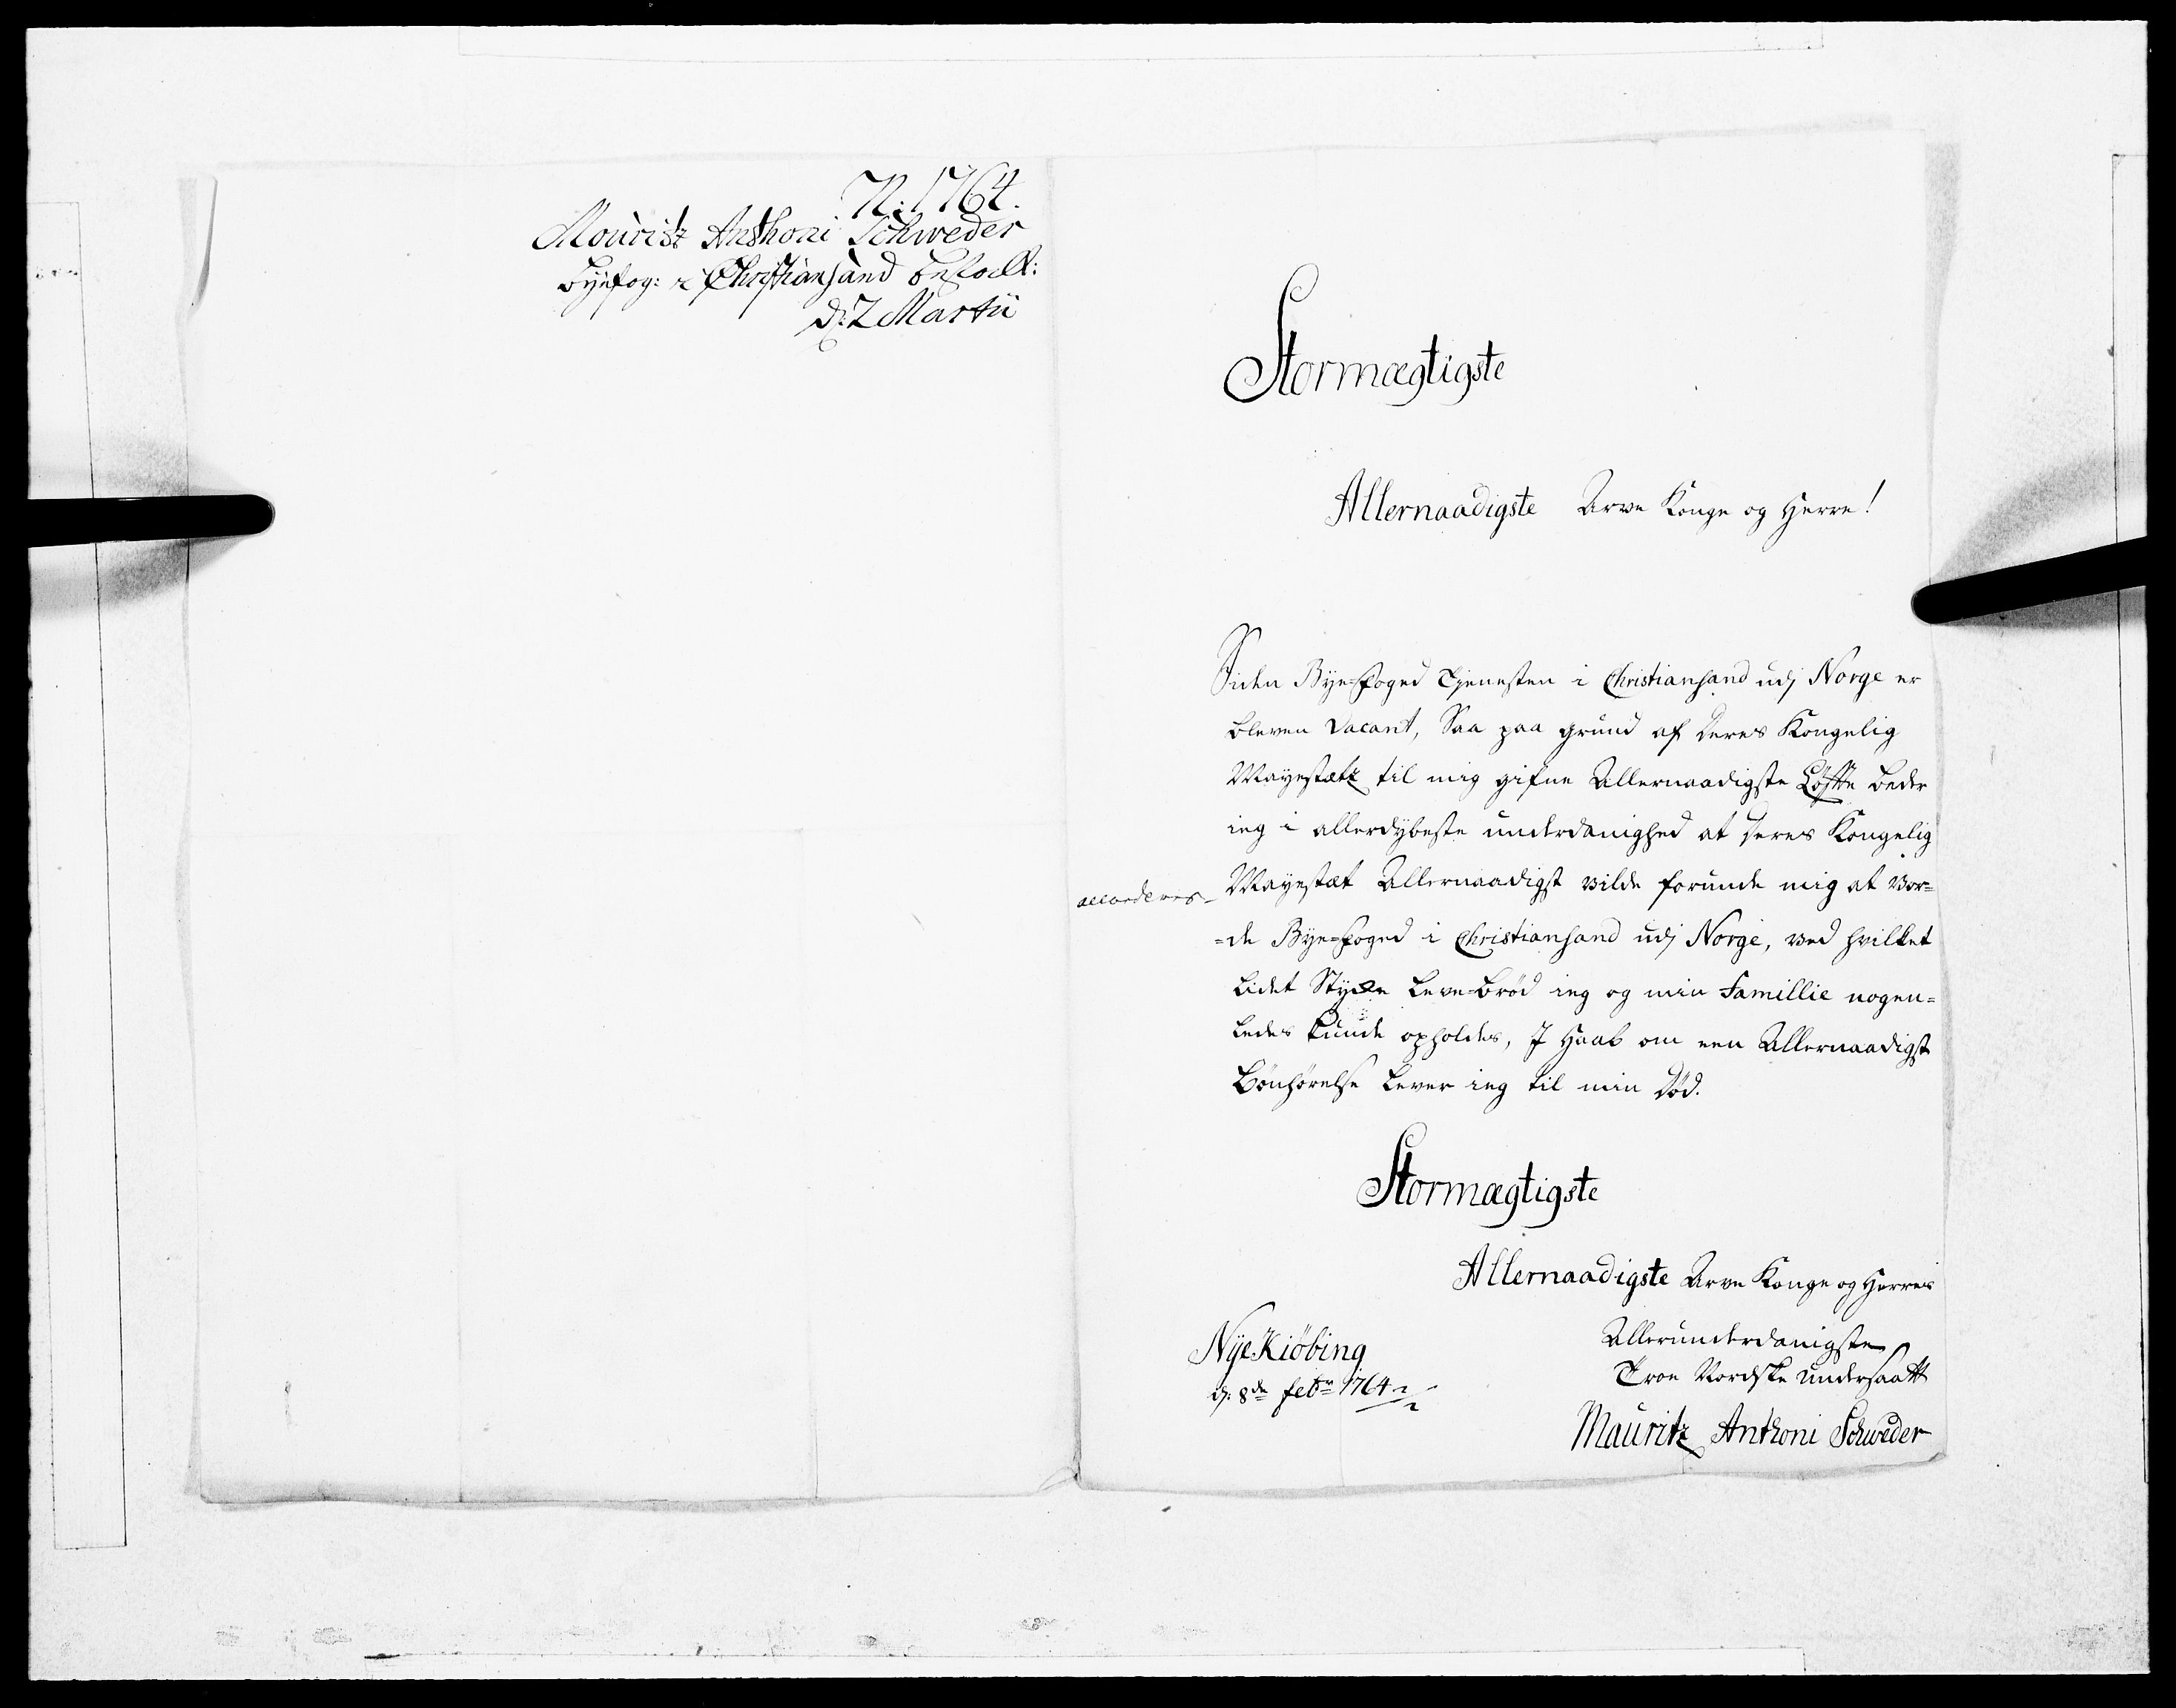 N: 1764.
Mouritz Anthoni Schweder
byefog: i Christiansand bestall:
d: 2 Martii
Stormægtigste
Allernaadigste Arve Konge og Herre!
Siden Bye-foged Tjenesten i Christiansand udj Norge er
bleven vacant, Saa paa grund af Deres Kongelig
Mayestætz til mig gifne Allernaadigste Løfte beder
ieg i allerdybeste underdanighed at Deres Kongelig
accorderes
Mayestæt Allernaadigst vilde forunde mig at vor=
=de Bye=foged i Christiansand udj Norge, ved hvilket
lidet Stycke Leve=brød ieg og min Famillie nogen=
ledes kunde opholdes, I Haab om een Allernaadigst
Bønhørelse lever ieg til min Død.
Stormægtigste
Allernaadigste Arve Konge og Herres
Nye Kiøbing
d: 8de febr 1764
Allerunderdanigste
Troe Nordske undersaatt
Mauritz Anthoni Schweder